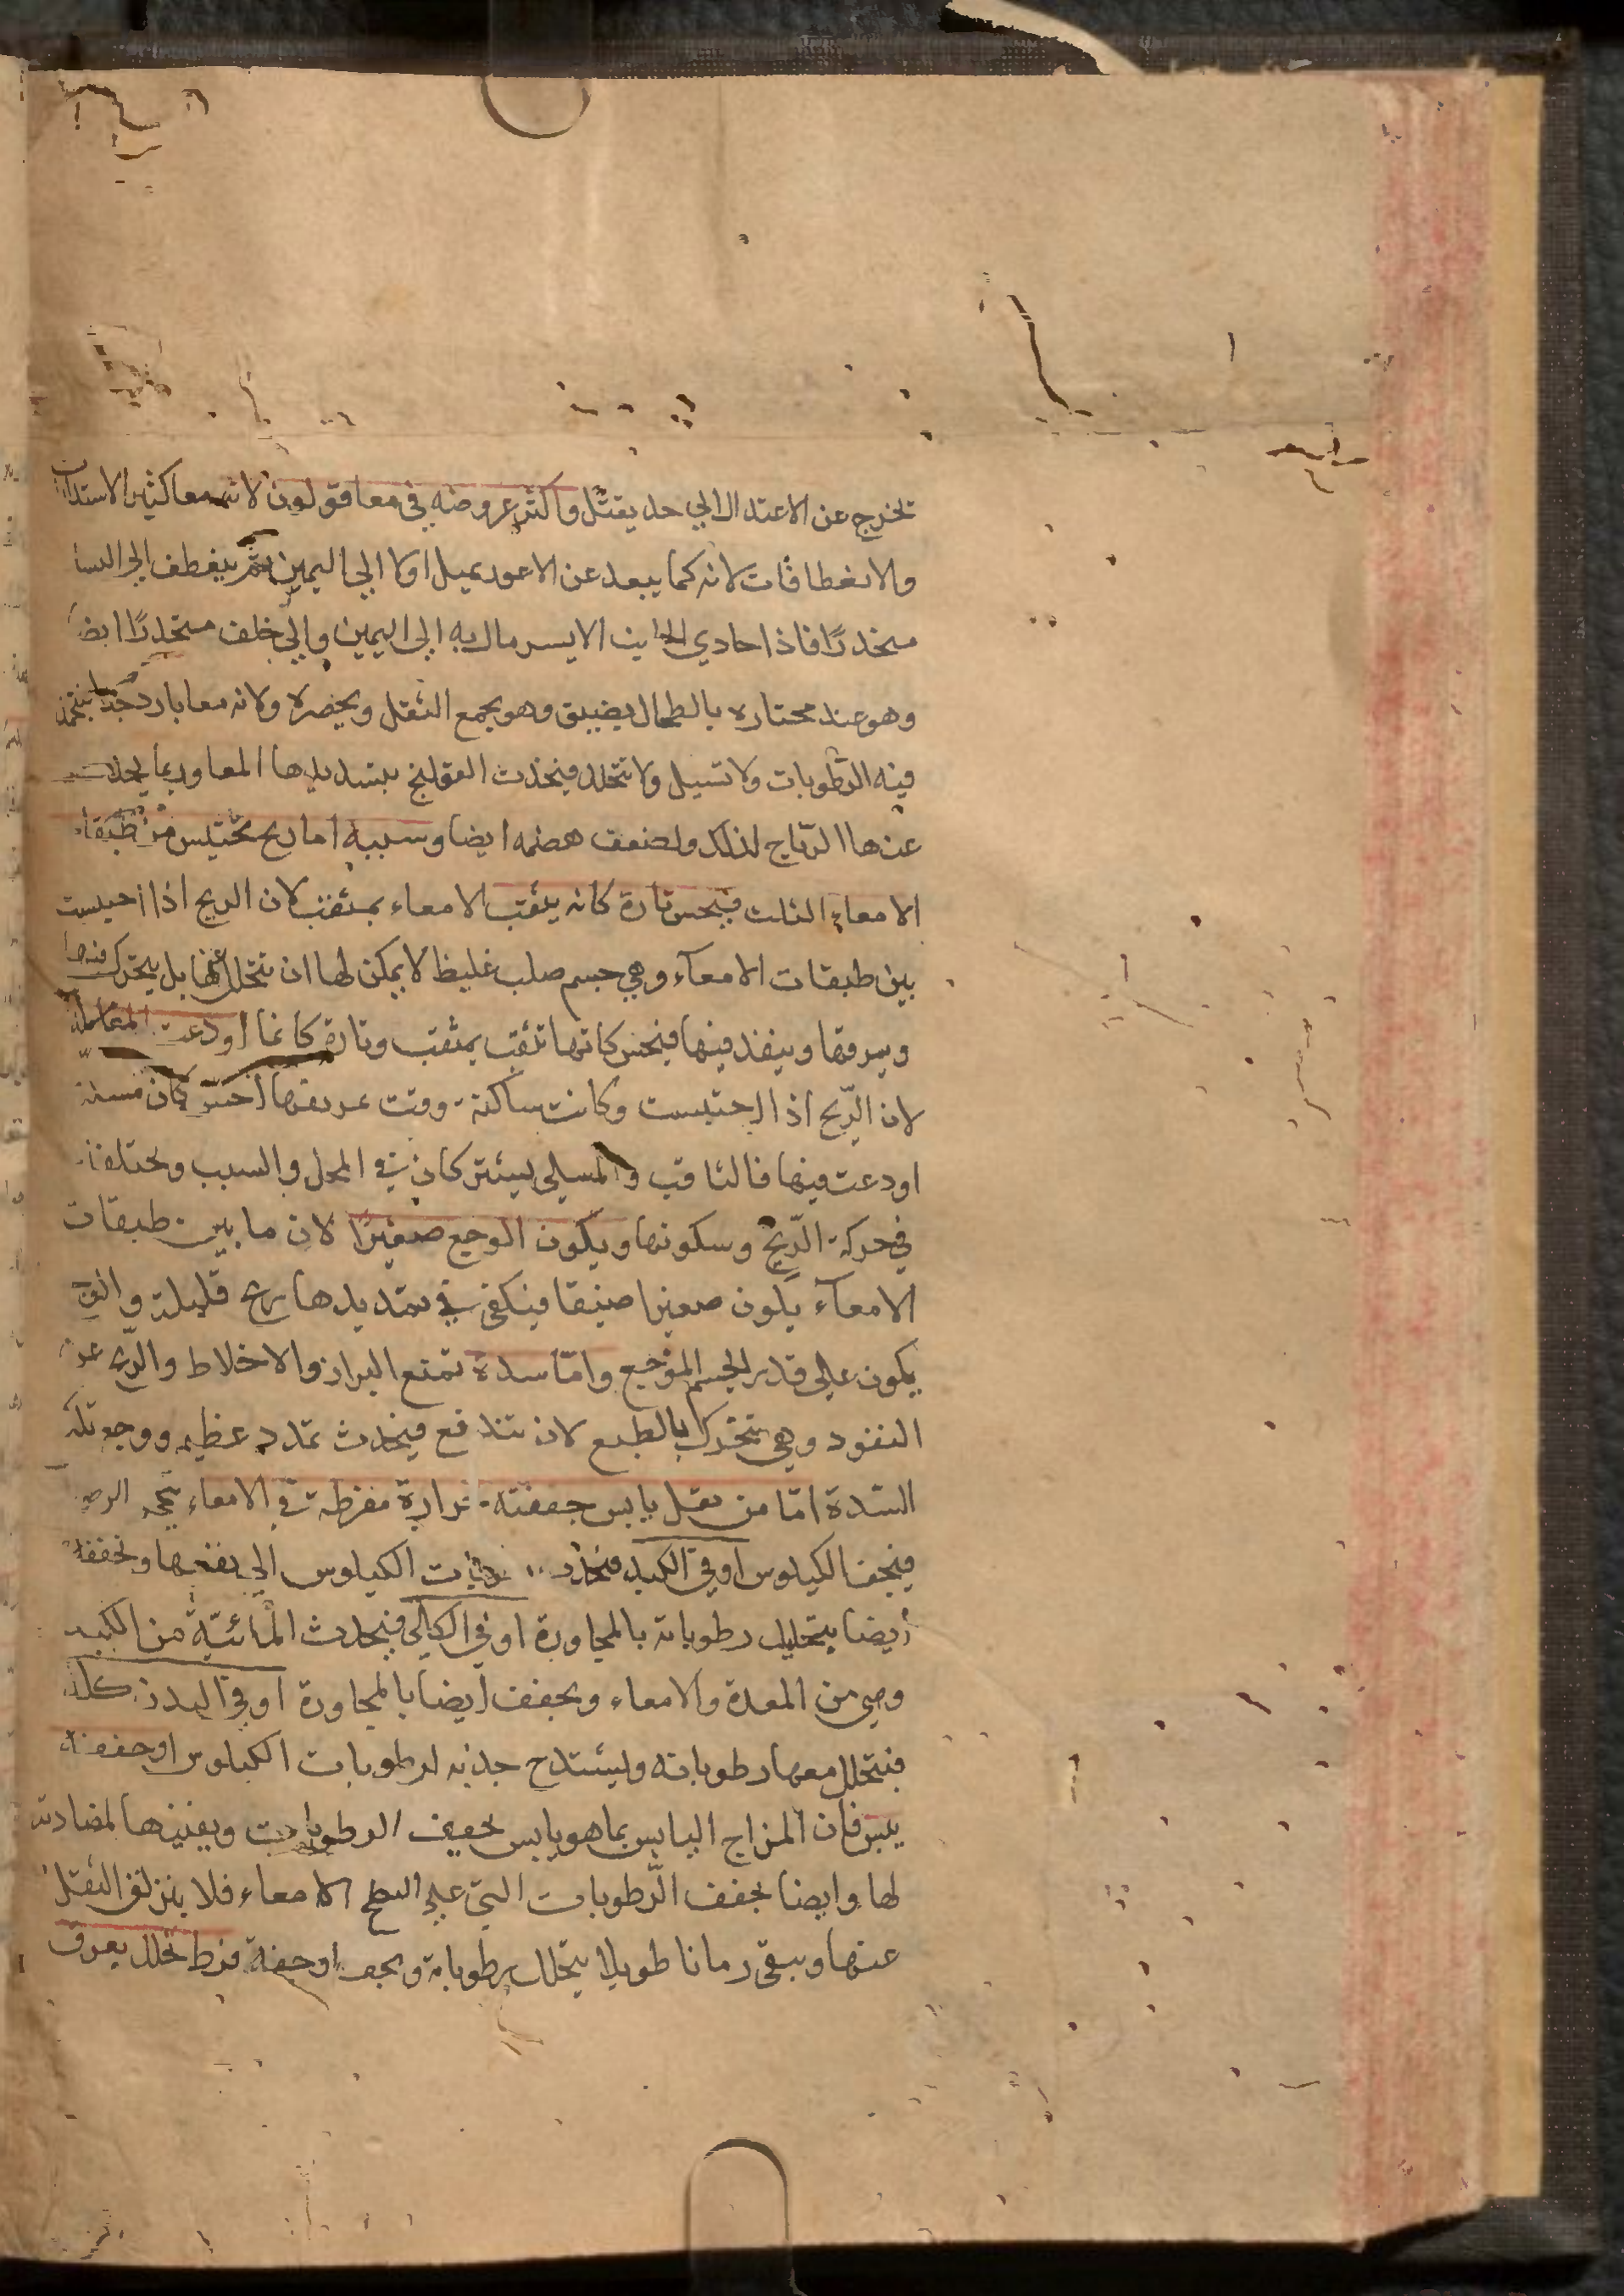 تخرج عن الاعتدال الي حد يقتل واكثر عروضه في معا قولون لانه معا كثير الاستدارات
والانعطافات لانه كما يبعد عن الاعور يميل اولا الي اليمين ثم ينعطف الي اليسا
منحدرًا فاذا حادي الجانب الايسر مال به الي اليمين والي خلف منحدرًا ايضا
وهو عند محتازه بالطحال يضيق وهو يجمع الثفل ويحصره ولانه معا بارد جدا
فيه الرطوبات ولا تسيل ولا تتحلل فيحدث القولنج بتسديدها المعا وربما يحدث
عنها الرياح لذلك ولضعف هضمه ايضا وسببه اما ريح تحتبس من طبقات
الامعاء الثلث فيحس تارة كانه يثقب الامعاء بمثقب لان الريح اذا احتبست
بين طبقات الامعآء وهي جسم صلب غليظ لا يمكن لها ان تتحلل عنها بل يتحرك فيها
ويمرقها وينفذ فيها فيحس كانها تثقب بمثقب وتارة كانما اودعت
لان الرّيح اذا احتبست وكانت ساكنة وقت احس كان مسلة
اودعت فيها فالثاقب والمسلي يشتركان في المحل والسبب ومختلفان
في حركة الرّيح وسكونها ويكون الوجع صغيرًا لان ما بين طبقات
الامعآء يكون صغيرا ضيقا فيكفي في تمديدها ريح قليلة والوجع
يكون علي قدر الجسم الموجع وامّا سدة تمنع البراز والاخلاط والرّيح عن
النفود وهي تتحرك بالطبع لان تندفع فيحدث تمدد عظيم ووجع تلك
السّدة امّا من ثفل يابس جففته حرارة مفرطة في الامعاء
فيجف الكيلوس او في الكبد رطوبات الكيلوس الي نفسها وتجففه
ايضا بتحليل رطوباته بالمجاورة او في الكلي فيجدث المائيّة من الكبد
وهي من المعدة والامعاء ويجفف ايضا بالمجاورة او في البدن كله
فيتحلل معها رطوباته وليشتدح جذبه لرطوبات الكيلوس او جففه
يبس فان المزاج اليابس بما هو يابس يجفف الرطوبات ويفنيها لمضادته
لها وايضا يجفف الرّطوبات التي علي السطح الامعاء فلا ينزلق الثفل
عنها ويبقي زمانا طويلا يتحلل رطوباته ويجف او جففه فرط تحلل بعرق